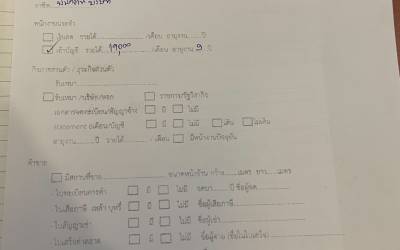 อาชีพ พนักงาน บริษัท
พนักงานประจำ
☐ เงินสด รายได้ /เดือน อายุงาน ปี
☑ เข้าบัญชี รายได้ 19,000 /เดือน อายุงาน 9 ปี
กิจการส่วนตัว / ธุระกิจส่วนตัว
รับเหมา
☐ รับเหมา/บริษัท/หจก ☐ ราชการ/รัฐวิสาหกิจ
เอกสารจดทะเบียน/สัญญาจ้าง ☐ มี ☐ ไม่มี
statement 6เดือน/บัญชี ☐ มี ☐ ไม่มี ☐ เดิน ☐ ไม่เดิน
อายุงาน ปี รายได้ /เดือน ☐ มีหน้างานปัจจุบัน
ค้าขาย
☐ มีสถานที่ขาย ขนาดหน้าร้าน กว้าง เมตร ยาว เมตร
- ใบทะเบียนการค้า ☐ มี ☐ ไม่มี จดมา ปี ชื่อผู้จด
- ใบเสียภาษี เหล้า บุหรี่ ☐ มี ☐ ไม่มี ชื่อผู้เสียภาษี
- ใบสัญญาเช่า ☐ มี ☐ ไม่มี ชื่อผู้เช่า
- ใบเสร็จค่าตลาด ☐ มี ☐ ไม่มี ชื่อผู้จ่าย (ชื่อในใบเสร็จ)